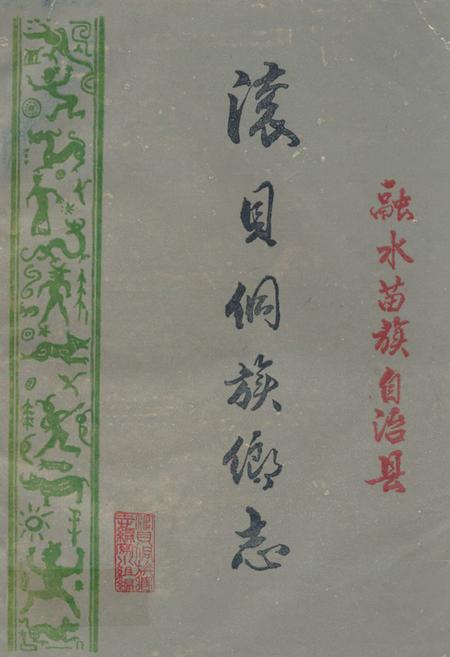 融水苗族自治县
滚贝侗族鄉志